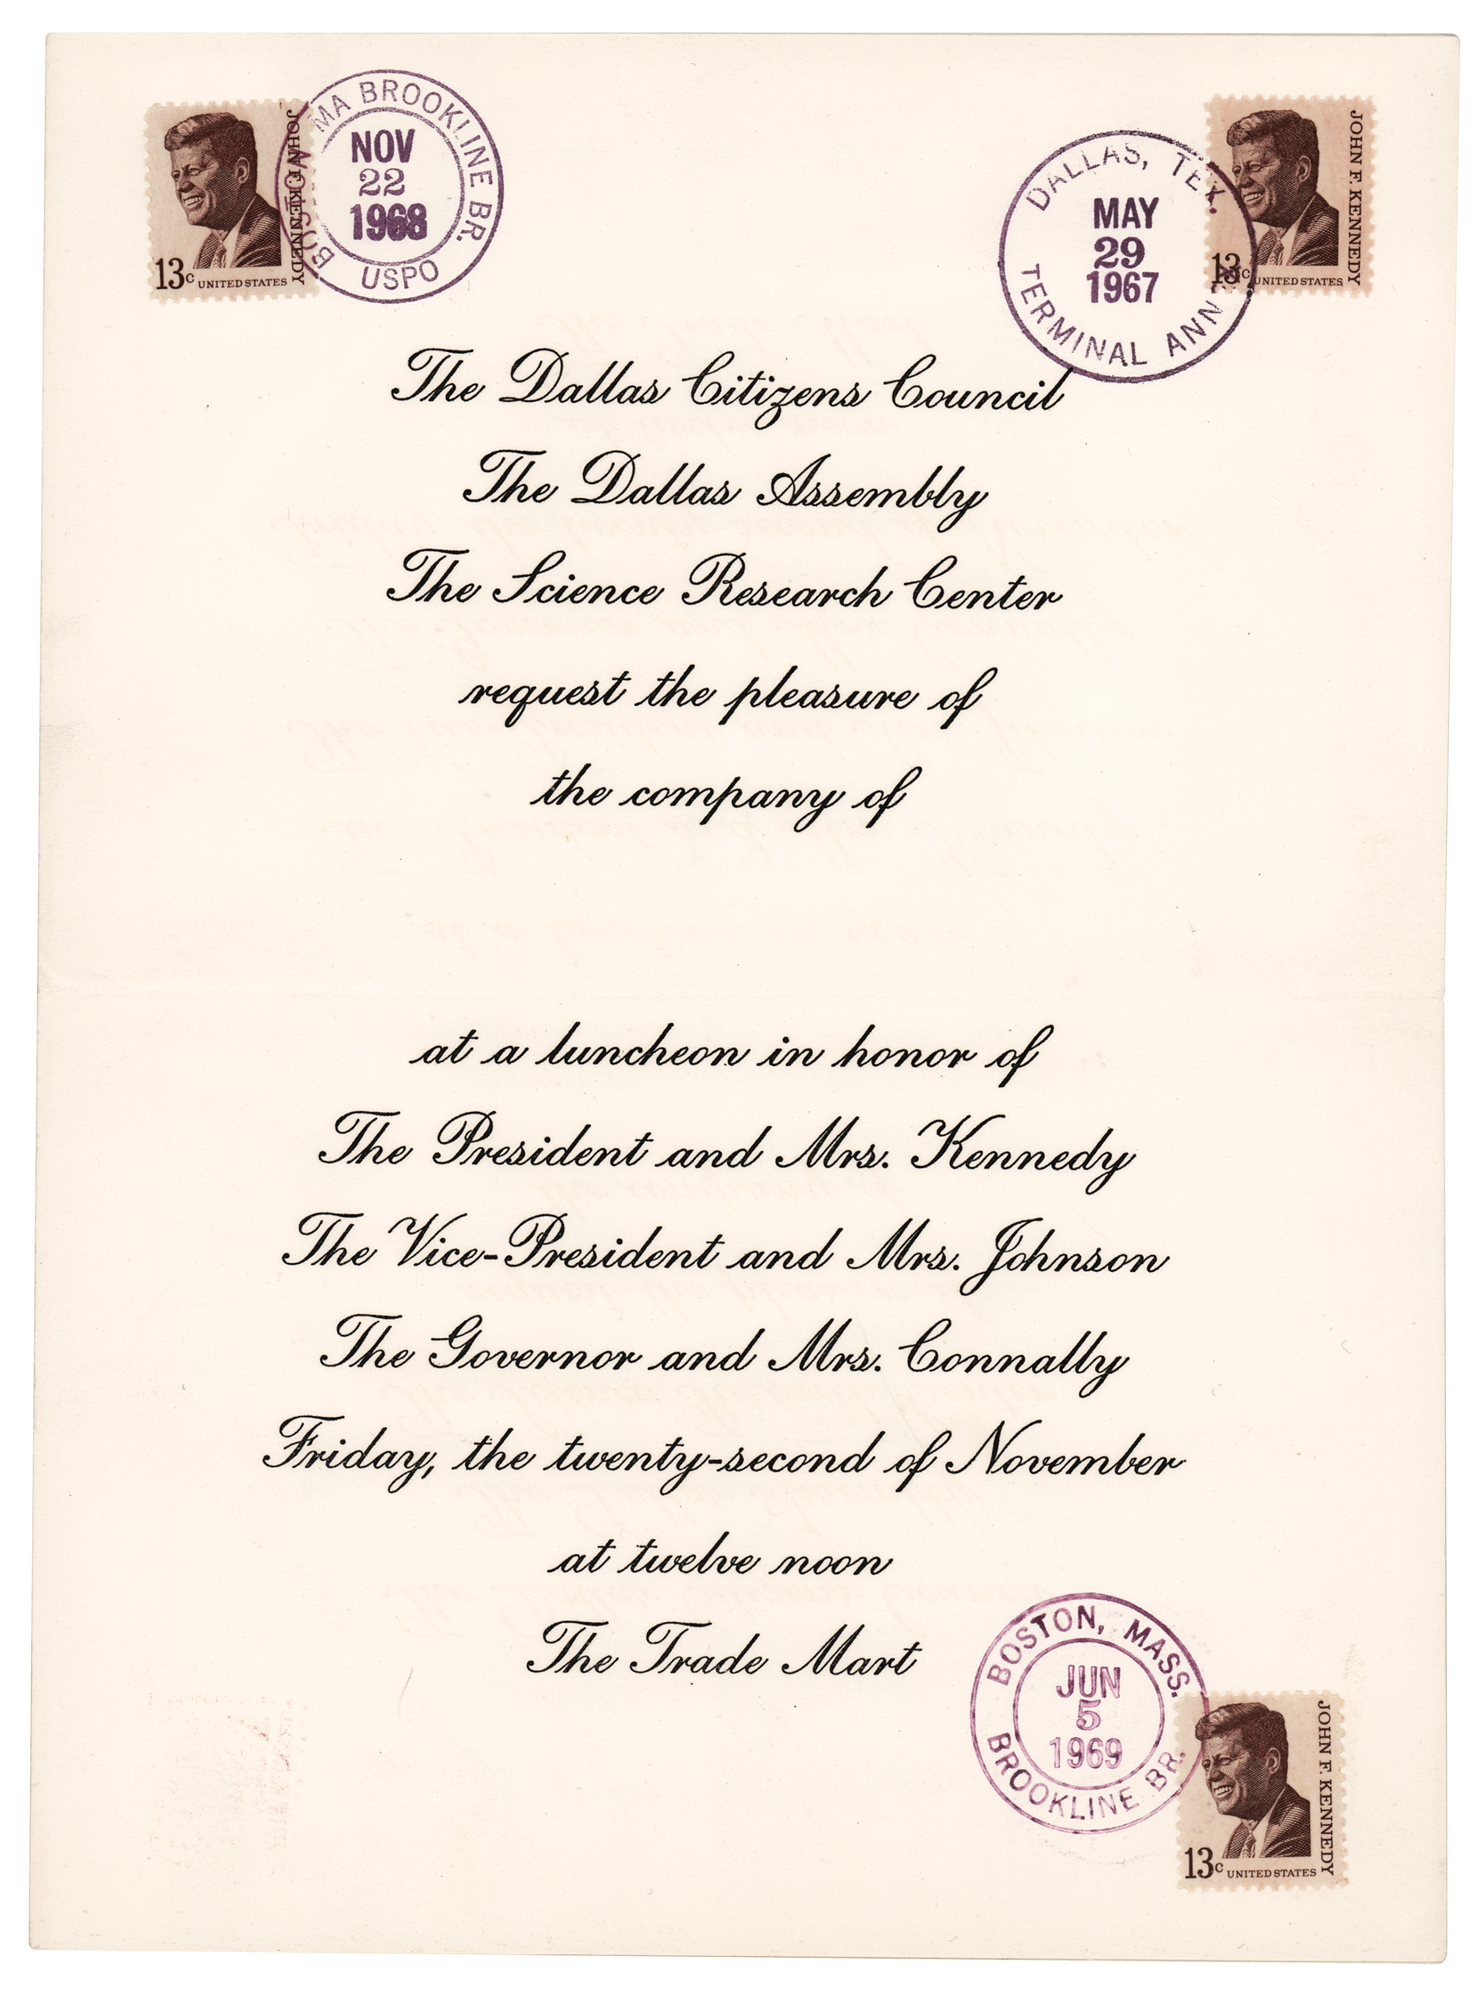 MA BROOKLINE BR.
BOSTON
USPO
NOV
22
1968
JOHN F. KENNEDY
13c UNITED STATES
DALLAS, TEX.
MAY
29
1967
TERMINAL ANN
JOHN F. KENNEDY
13c UNITED STATES
The Dallas Citizens Council
The Dallas Assembly
The Science Research Center
request the pleasure of
the company of
at a luncheon in honor of
The President and Mrs. Kennedy
The Vice-President and Mrs. Johnson
The Governor and Mrs. Connally
Friday, the twenty-second of November
at twelve noon
The Trade Mart
BOSTON, MASS.
JUN
5
1969
BROOKLINE BR.
JOHN F. KENNEDY
13c UNITED STATES